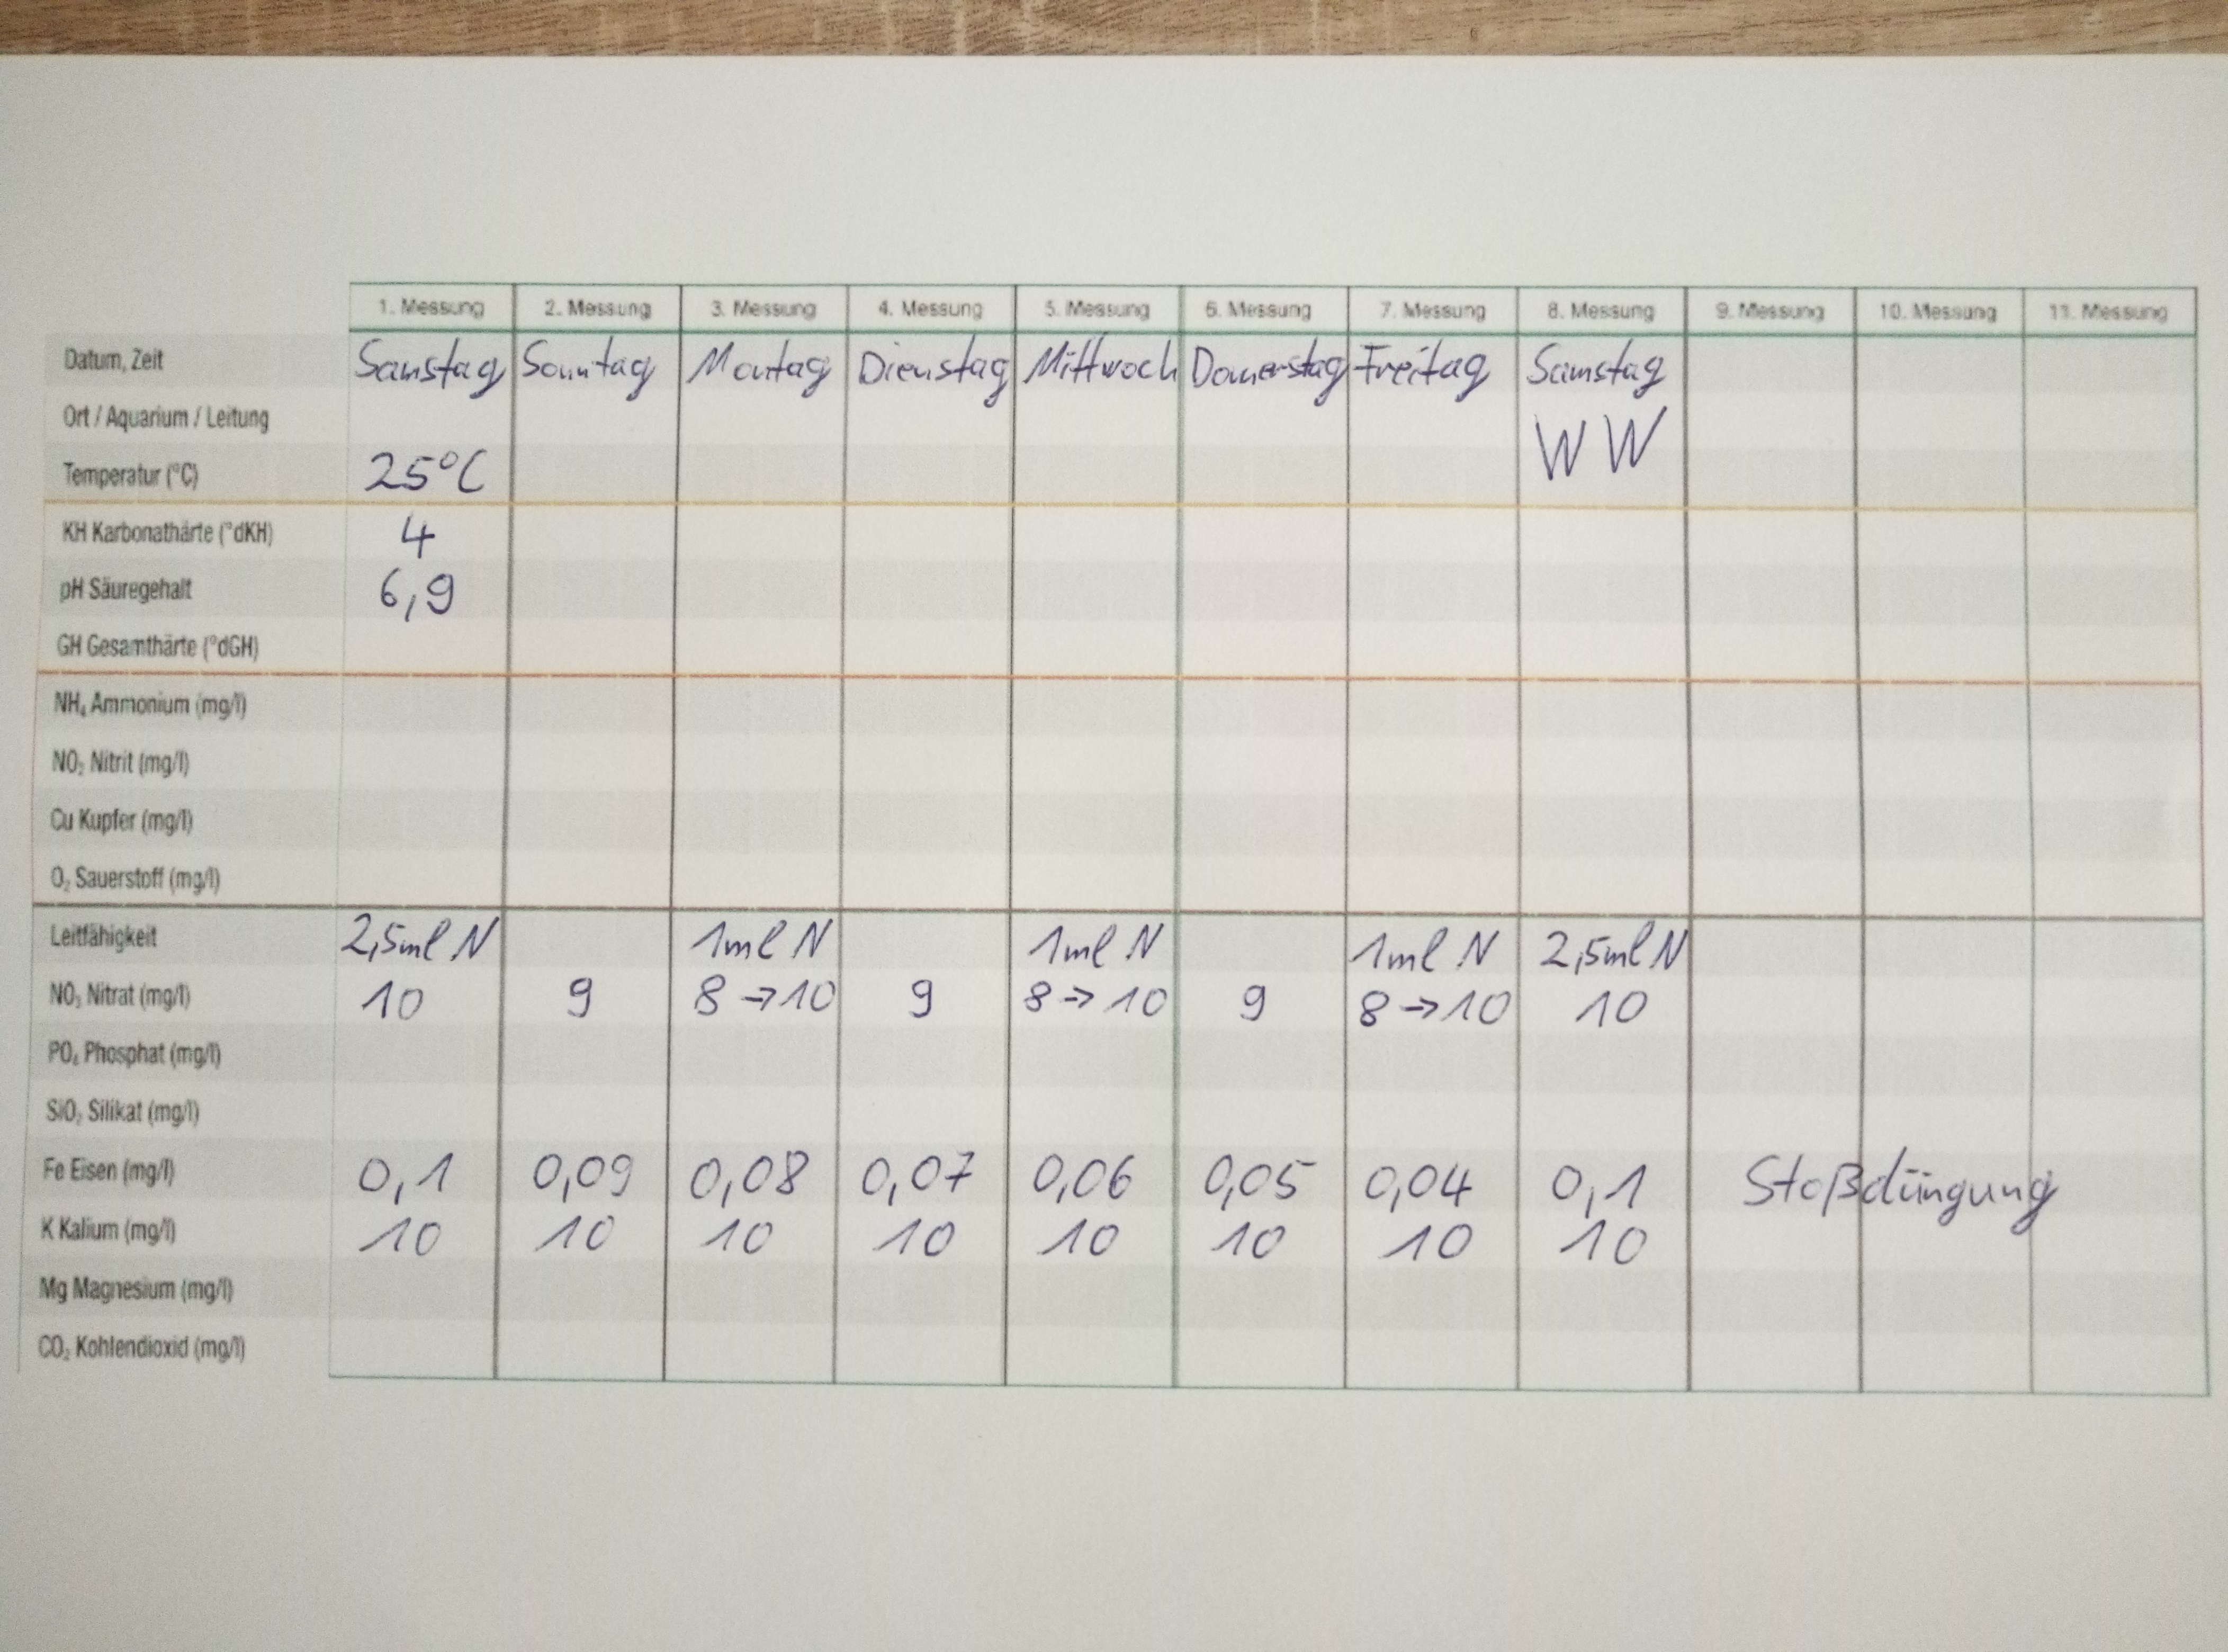 1. Messung 2. Messung 3. Messung 4. Messung 5. Messung 6. Messung 7. Messung 8. Messung 9. Messung 10. Messung 11. Messung
Datum, Zeit Samstag Sonntag Montag Dienstag Mittwoch Donnerstag Freitag Samstag
Ort / Aquarium / Leitung WW
Temperatur (°C) 25°C
KH Karbonathärte (°dKH) 4
pH Säuregehalt 6,9
GH Gesamthärte (°dGH)
NH₄ Ammonium (mg/l)
NO₂ Nitrit (mg/l)
Cu Kupfer (mg/l)
O₂ Sauerstoff (mg/l)
Leitfähigkeit 2,5ml N 1ml N 1ml N 1ml N 2,5ml N
NO₃ Nitrat (mg/l) 10 9 8 → 10 9 8 → 10 9 8 → 10 10
PO₄ Phosphat (mg/l)
SiO₂ Silikat (mg/l)
Fe Eisen (mg/l) 0,1 0,09 0,08 0,07 0,06 0,05 0,04 0,1 Stoßdüngung
K Kalium (mg/l) 10 10 10 10 10 10 10 10
Mg Magnesium (mg/l)
CO₂ Kohlendioxid (mg/l)